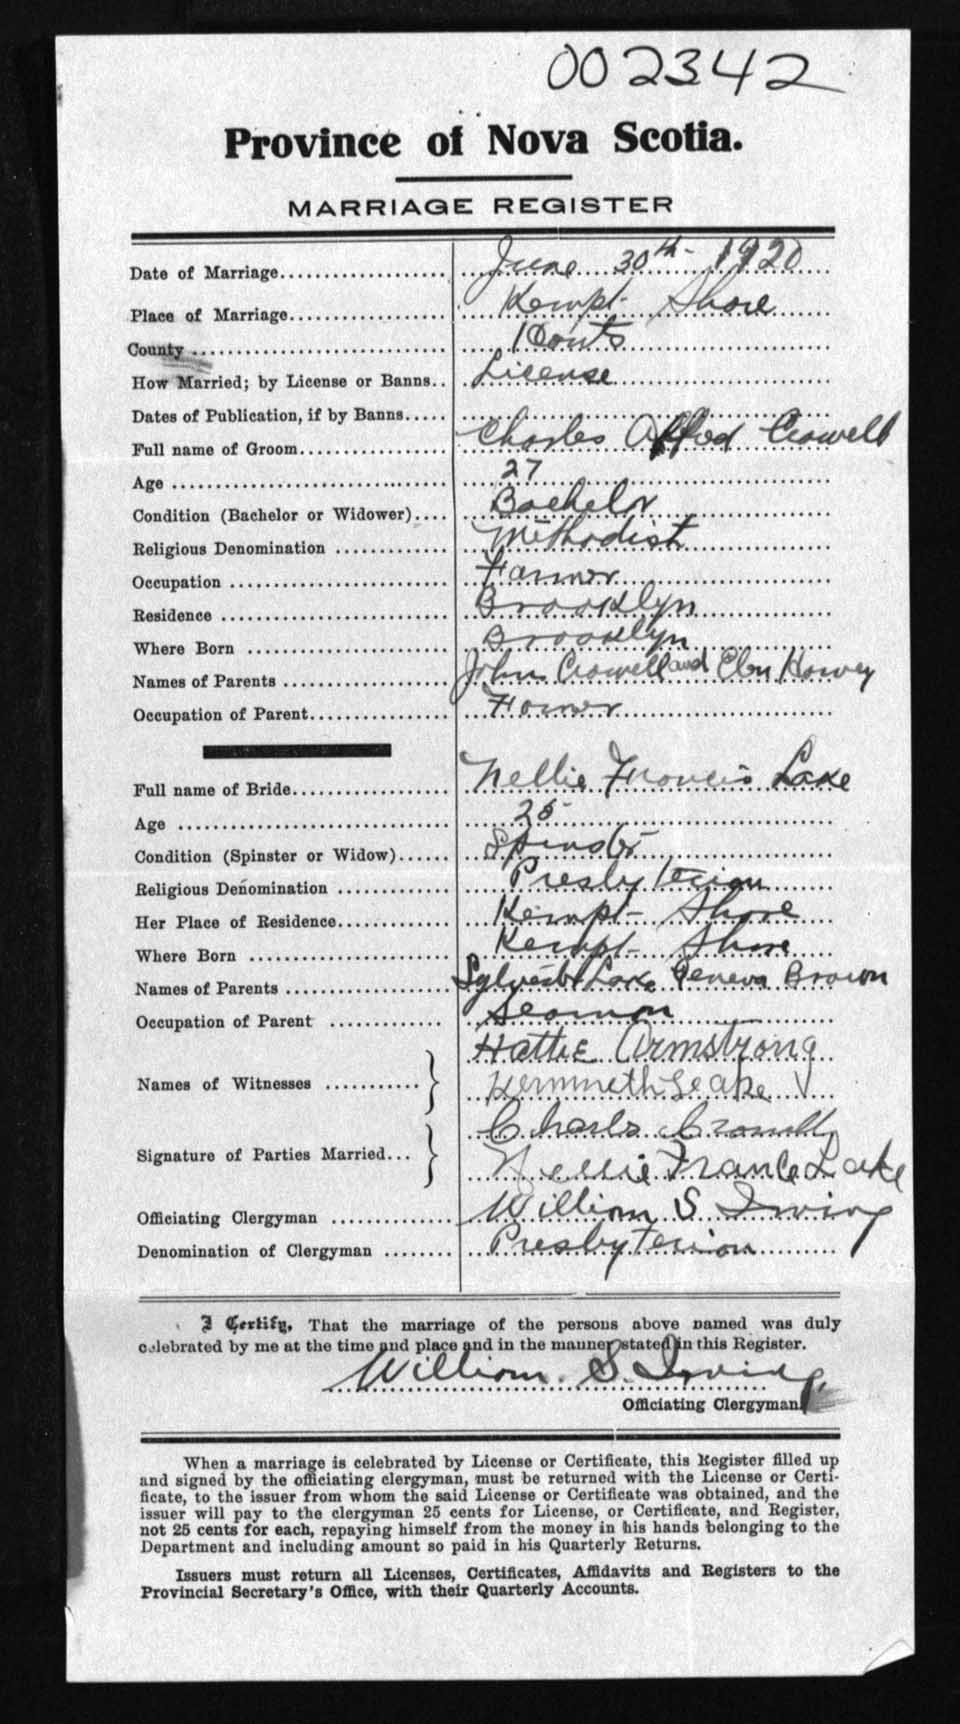 002342
Province of Nova Scotia.
MARRIAGE REGISTER
Date of Marriage.................... June 30th 1920
Place of Marriage................... Kempt Shore
County .............................. Hants
How Married; by License or Banns.. License
Dates of Publication, if by Banns.....
Full name of Groom.................. Charles Alfred Crowell
Age ................................. 27
Condition (Bachelor or Widower).... Bachelor
Religious Denomination ............. Methodist
Occupation .......................... Farmer
Residence ........................... Brooklyn
Where Born ......................... Brooklyn
Names of Parents .................... John Crowell and Eben Harvey
Occupation of Parent................ Farmer
Full name of Bride................... Nellie Francis Lake
Age ................................. 25
Condition (Spinster or Widow)...... Spinster
Religious Denomination ............. Presbyterian
Her Place of Residence............. Kempt Shore
Where Born ......................... Kempt Shore
Names of Parents .................... Sylvester Lake Geneva Brown
Occupation of Parent ............... Seaman
Hattie Armstrong
Names of Witnesses ...........
Kennneth Leake
Charls Crowell
Signature of Parties Married...
Nellie France Lake
Officiating Clergyman ............... William S Irving
Denomination of Clergyman ........ Presbyterian
I Certify, That the marriage of the persons above named was duly
celebrated by me at the time and place and in the manner stated in this Register.
William S. Irving
Officiating Clergyman.
When a marriage is celebrated by License or Certificate, this Register filled up
and signed by the officiating clergyman, must be returned with the License or Certi-
ficate, to the issuer from whom the said License or Certificate was obtained, and the
issuer will pay to the clergyman 25 cents for License, or Certificate, and Register,
not 25 cents for each, repaying himself from the money in his hands belonging to the
Department and including amount so paid in his Quarterly Returns.
Issuers must return all Licenses, Certificates, Affidavits and Registers to the
Provincial Secretary's Office, with their Quarterly Accounts.